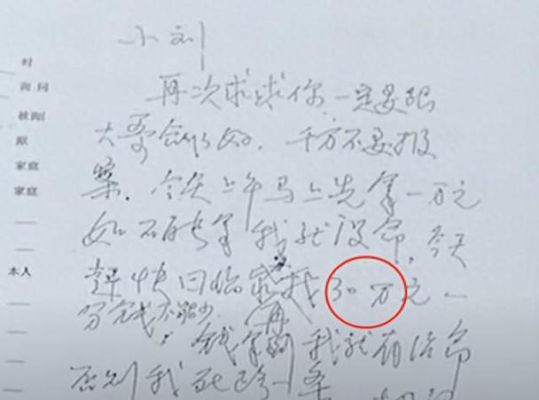 小刘
时
再次求求你一定要跟
询问
被询
大哥合作好，千万不要报
原
家庭
案，今天上午马上先拿一万元
家庭
如不能拿我就没命，今天
本人
赶快回临 找30万元一
分钱不能少。
再
钱拿到我就有活命
否则我死路一条